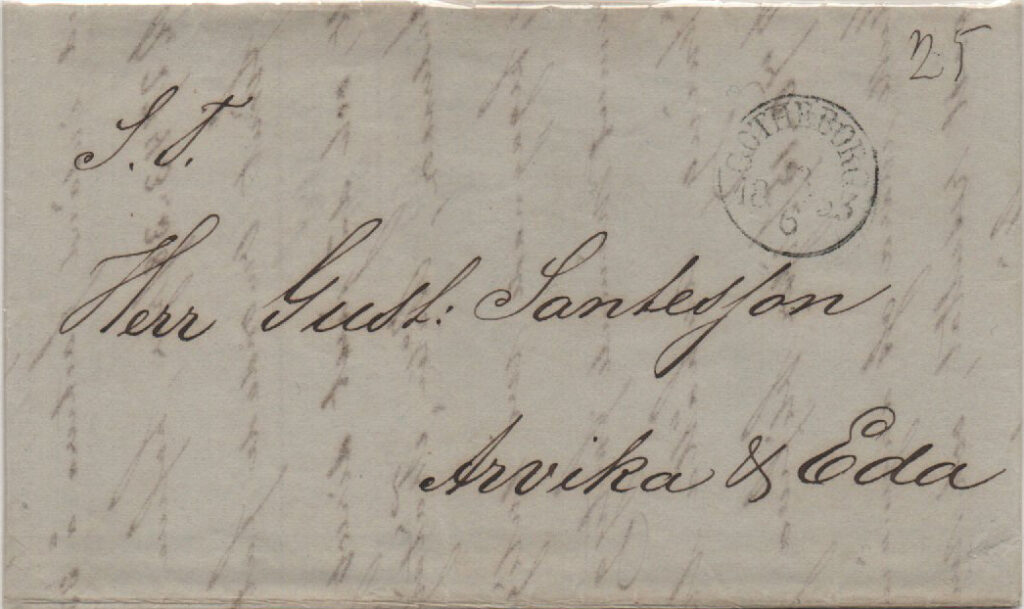 25
S. T.
GÖTHEBORG
18 53
6
Herr Gust: Santesson
Arvika & Eda